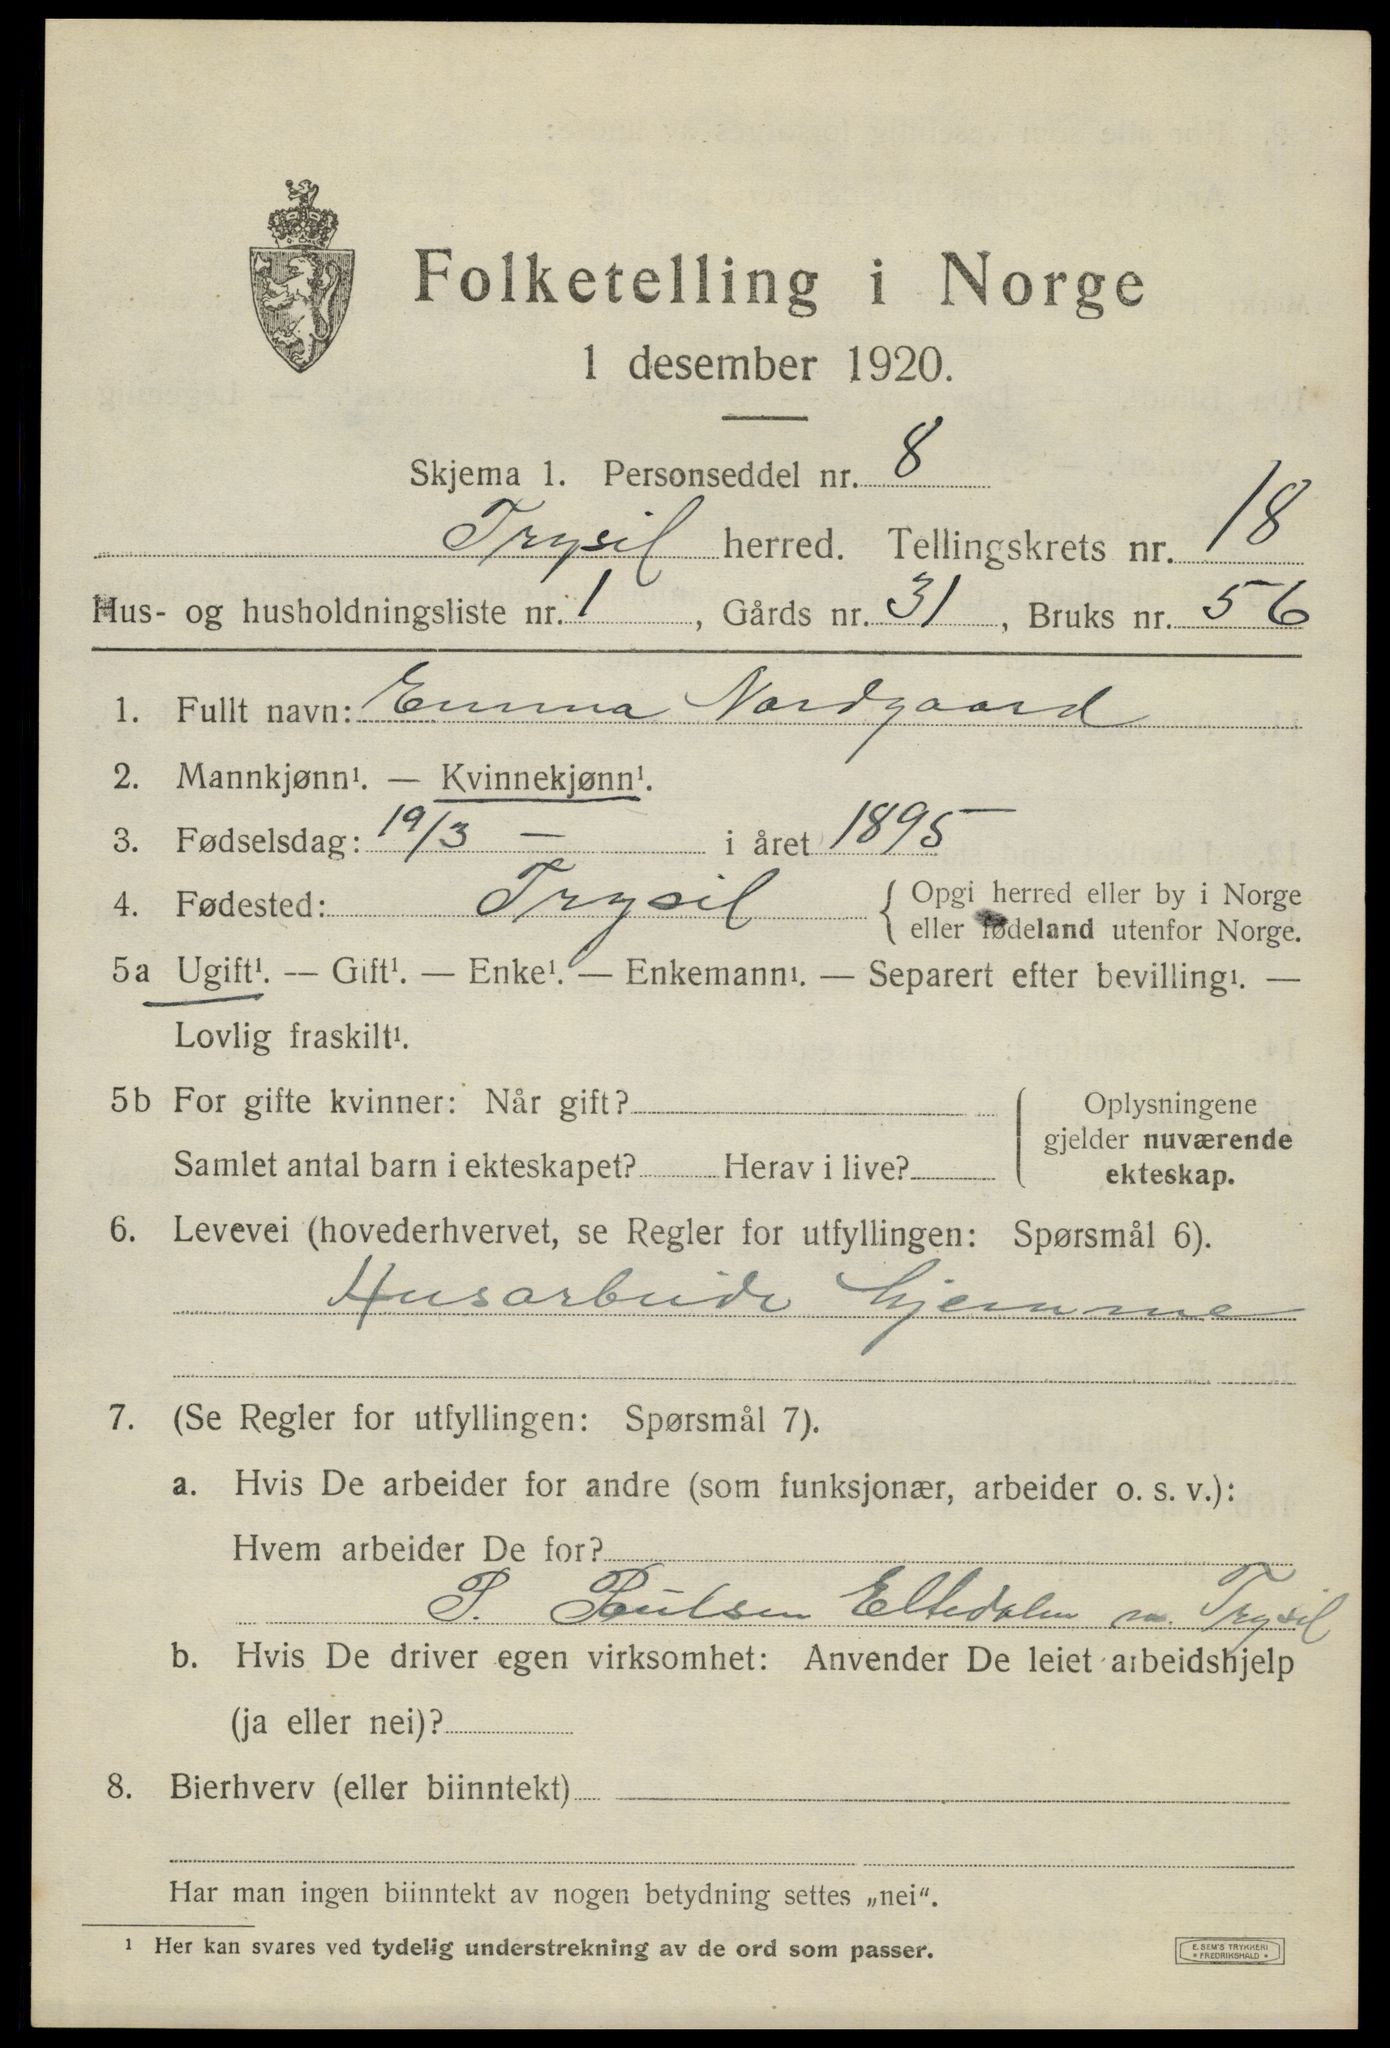 Folketelling i Norge
1 desember 1920.
Skjema 1. Personseddel nr. 8
Trysil herred. Tellingskrets nr. 18
Hus- og husholdningsliste nr. 1, Gårds nr. 31, Bruks nr. 56
1. Fullt navn: Emma Nordgaard
2. Mannkjønn¹. — Kvinnekjønn¹.
3. Fødselsdag: 19/3 — i året 1895
4. Fødested: Trysil { Opgi herred eller by i Norge
eller fødeland utenfor Norge.
5a Ugift¹. — Gift¹. — Enke¹. — Enkemann¹. — Separert efter bevilling¹. —
Lovlig fraskilt¹.
5b For gifte kvinner: Når gift?
Samlet antal barn i ekteskapet? Herav i live?
Oplysningene
gjelder nuværende
ekteskap.
6. Levevei (hovederhvervet, se Regler for utfyllingen: Spørsmål 6).
Husarbeide hjemme
7. (Se Regler for utfyllingen: Spørsmål 7).
a. Hvis De arbeider for andre (som funksjonær, arbeider o. s. v.):
Hvem arbeider De for?
P. Eltedalen Trysil
b. Hvis De driver egen virksomhet: Anvender De leiet arbeidshjelp
(ja eller nei)?
8. Bierhverv (eller biinntekt)
Har man ingen biinntekt av nogen betydning settes „nei“.
¹ Her kan svares ved tydelig understrekning av de ord som passer.
E. SEM'S TRYKKERI
* FREDRIKSHALD *